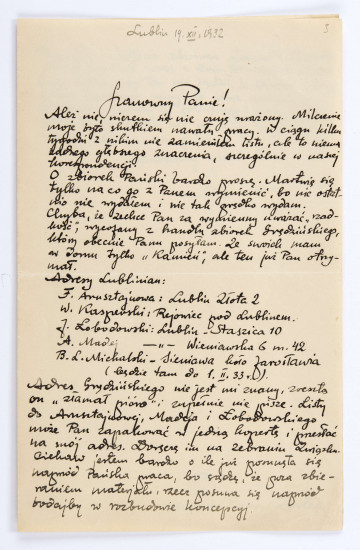 Lublin 19.XII.1932
3
Szanowny Panie!
Ależ nie, niczem się nie czuję urażony. Milczenie
moje było skutkiem nawału pracy. W ciągu kilku
tygodni z nikim nie zamieniłem listu, ale to niema
żadnego głębszego znaczenia, szczególnie w naszej
korespondencji.
O zbiorek Pański bardzo proszę. Martwię się
tylko na co go z Panem wymienić, bo nic ostat-
nio nie wydałem i nie tak prędko wydam.
Chyba, że zechce Pan za wymienny uważać, rzad-
kość, wycofany z handlu zbiorek Grędzińskiego,
który obecnie Panu posyłam. Ze swoich mam
w domu tylko „Kamień", ale ten już Pan otrzy-
mał.
Adresy Lublinian:
F. Arnsztajnowa: Lublin Złota 2
W. Kasperski: Rejowiec pod Lublinem.
J. Łobodowski: Lublin Staszica 10
A. Madej —„— Wieniawska 6 m. 42
B. L. Michalski - Sieniawa koło Jarosławia
(będzie tam do 1.II.33.)
Adres Grędzińskiego nie jest mi znany, zresztą
on „złamał pióro" i zupełnie nie pisze. Listy
do Arnsztajnowej, Madeja i Łobodowskiego
może Pan zapakować w jedną kopertę i przesłać
na mój adres. Doręczę im na zebraniu Związku.
Ciekaw jestem bardzo o ile już posunęła się
naprzód Pańska praca, bo sądzę, że poza zbie-
raniem materjału, rzecz posuwa się naprzód
bodajby w rozbudowie koncepcji